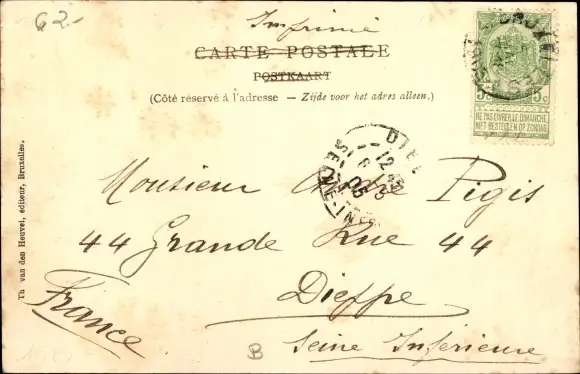 62-
Imprimé
CARTE POSTALE
POSTKAART
(Côté réservé à l'adresse – Zijde voor het adres alleen.)
5c 5c
NE PAS LIVRER LE DIMANCHE
NIET BESTELLEN OP ZONDAG
Monsieur André Pigis
44 Grande Rue 44
Dieppe
Seine Inférieure
France
Th van den Heuvel, éditeur, Bruxelles.
B